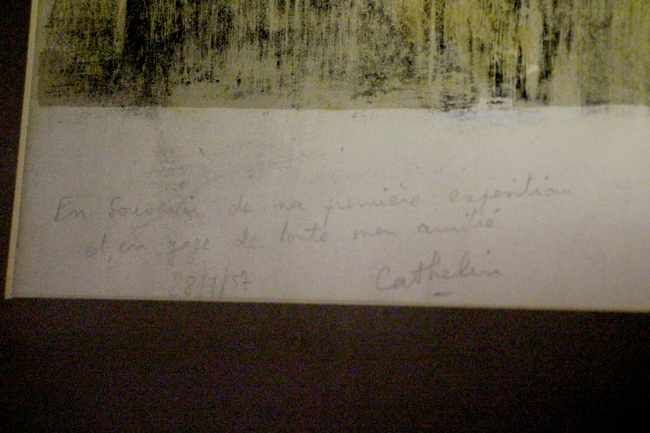 En Souvenir de ma première exposition
et, en gage de toute mon amitié
28/7/57 Cathelin